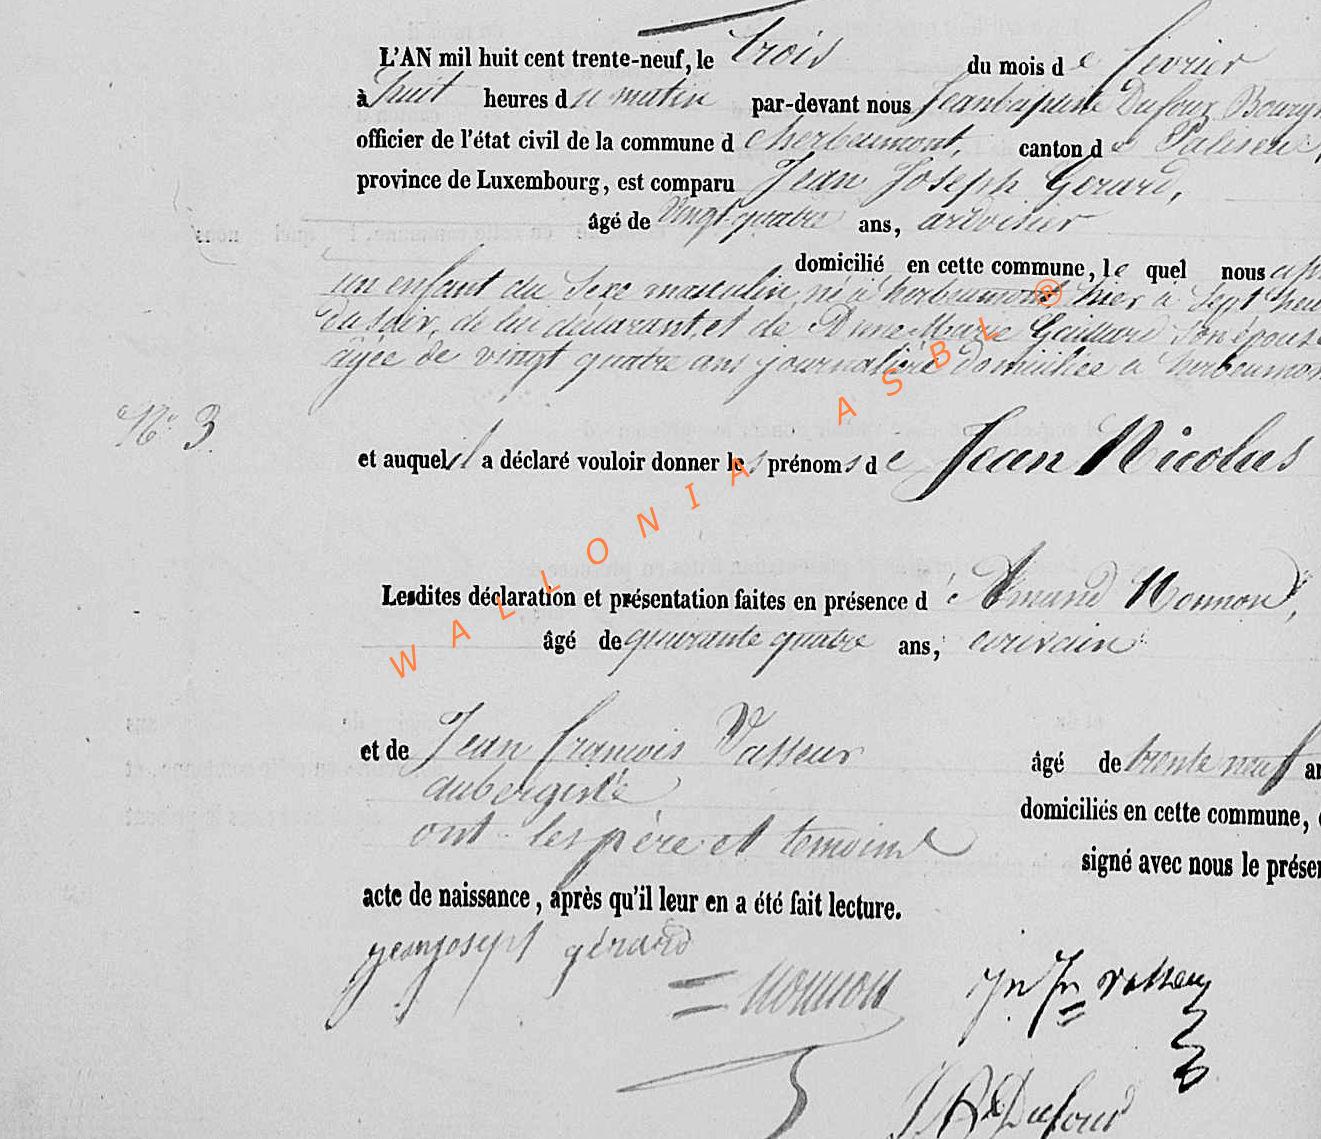 L'AN mil huit cent trente-neuf, le trois du mois de fevrier
à huit heures du matin par-devant nous Jeanbaptiste Dufour Bourgm
officier de l'état civil de la commune d'herbeumont, canton de Paliseul,
province de Luxembourg, est comparu Jean Joseph Gerard,
âgé de vingt quatre ans, ardoisier
domicilié en cette commune, le quel nous a
un enfant du Sexe masculin né à herbeumont hier à Sept heu
du soir, de lui déclarant et de Dme Marie Gaillard Son épouse
agée de vingt quatre ans journalière domiciliée a herbeumon
N° 3
et auquel il a déclaré vouloir donner les prénoms de Jean Nicolas
Lesdites déclaration et présentation faites en présence d'Amand Nonnon,
âgé de quarante quatre ans, ecrivain
et de Jean francois Vasseur âgé de trente neuf an
aubergiste
domiciliés en cette commune,
ont les père et temoins signé avec nous le présen
acte de naissance, après qu'il leur en a été fait lecture.
jeanjosept gérard
Nonnon Jn Fn vasseur
JBte Dufour
WALLONIA ASBL ®